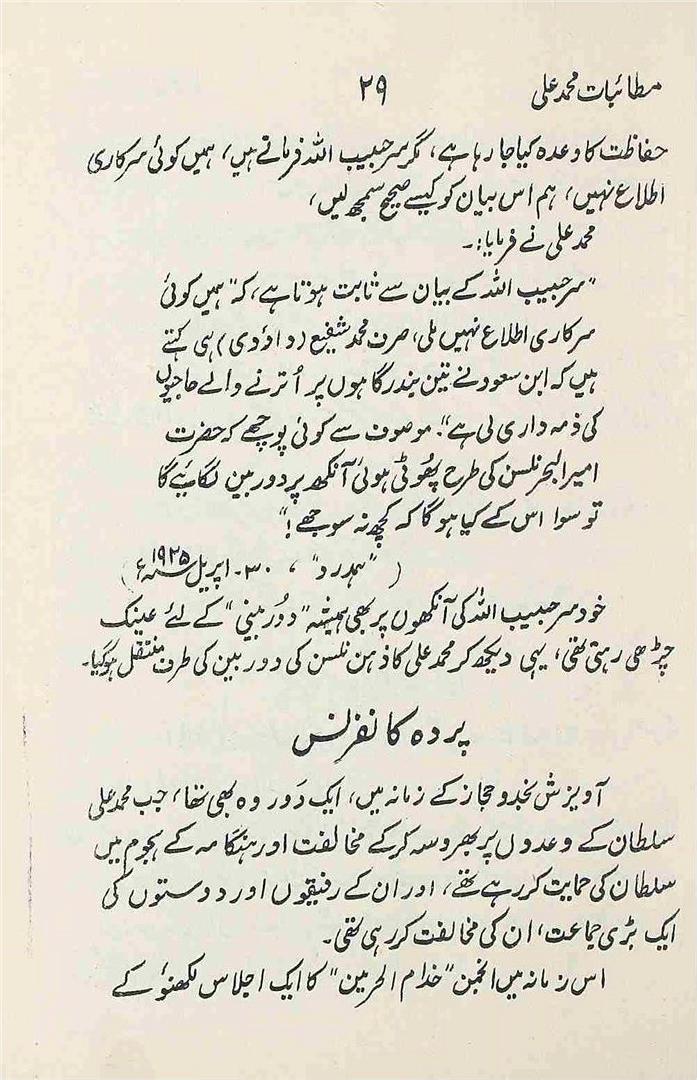 مطائبات محمد علی
۲۹
حفاظت کا وعدہ کیا جا رہا ہے، مگر سر حبیب اللہ فرماتے ہیں، ہمیں کوئی سرکاری
اطلاع نہیں، ہم اس بیان کو کیسے صحیح سمجھ لیں،
محمد علی نے فرمایا:۔
"سر حبیب اللہ کے بیان سے ثابت ہوتا ہے، کہ "ہمیں کوئی
سرکاری اطلاع نہیں ملی، صرف محمد شفیع (داؤدی) ہی کہتے
ہیں کہ ابن سعود نے تین بندرگاہوں پر اُترنے والے حاجیوں
کی ذمہ داری لی ہے"۔ موصوف سے کوئی پوچھے کہ حضرت
امیر البحر نلسن کی طرح پھُوٹی ہوئی آنکھ پر دوربین لگائیے گا
تو سوا اس کے کیا ہو گا کہ کچھ نہ سوجھے!"
("ہمدرد"، ۳۰۔ اپریل ۱۹۲۵ء)
خود سر حبیب اللہ کی آنکھوں پر بھی ہمیشہ "دُور بینی" کے لئے عینک
چڑھی رہتی تھی، یہی دیکھ کر محمد علی کا ذہن نلسن کی دوربین کی طرف منتقل ہو گیا۔
پردہ کانفرنس
آویزش نجد و حجاز کے زمانہ میں، ایک دَور وہ بھی تھا، جب محمد علی
سلطان کے وعدوں پر بھروسہ کر کے مخالفت اور ہنگامہ کے ہجوم میں
سلطان کی حمایت کر رہے تھے، اور ان کے رفیقوں اور دوستوں کی
ایک بڑی جماعت، ان کی مخالفت کر رہی تھی۔
اس زمانہ میں انجمن "خدام الحرمین" کا ایک اجلاس لکھنؤ کے